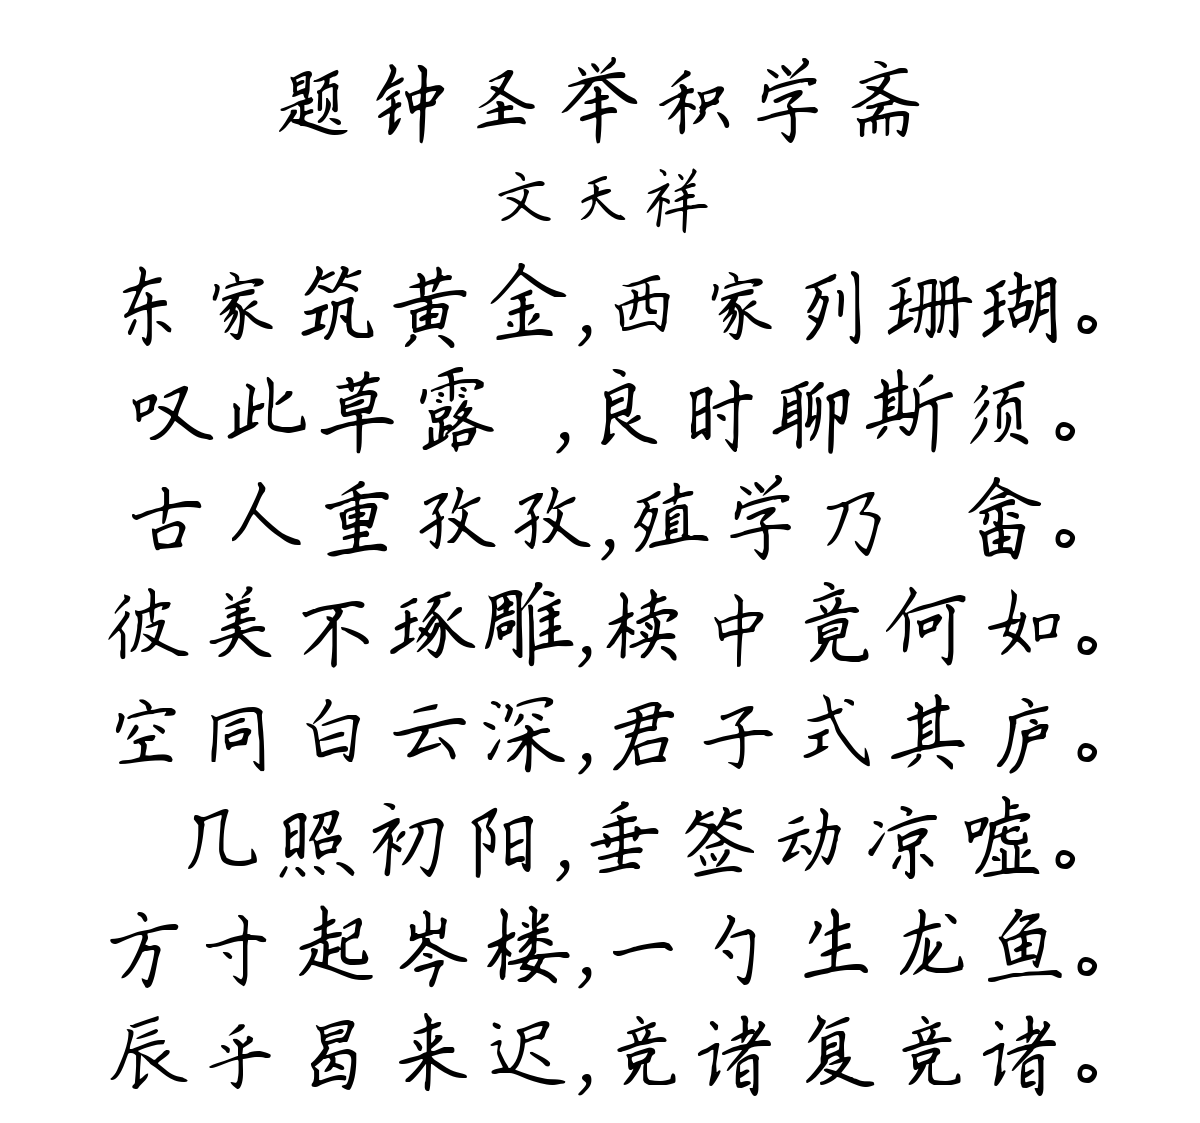 题钟圣举积学斋
文天祥
东家筑黄金,西家列珊瑚。
叹此草露 ,良时聊斯须。
古人重孜孜,殖学乃 畲。
彼美不琢雕,椟中竟何如。
空同白云深,君子式其庐。
几照初阳,垂签动凉嘘。
方寸起岑楼,一勺生龙鱼。
辰乎曷来迟,竞诸复竞诸。